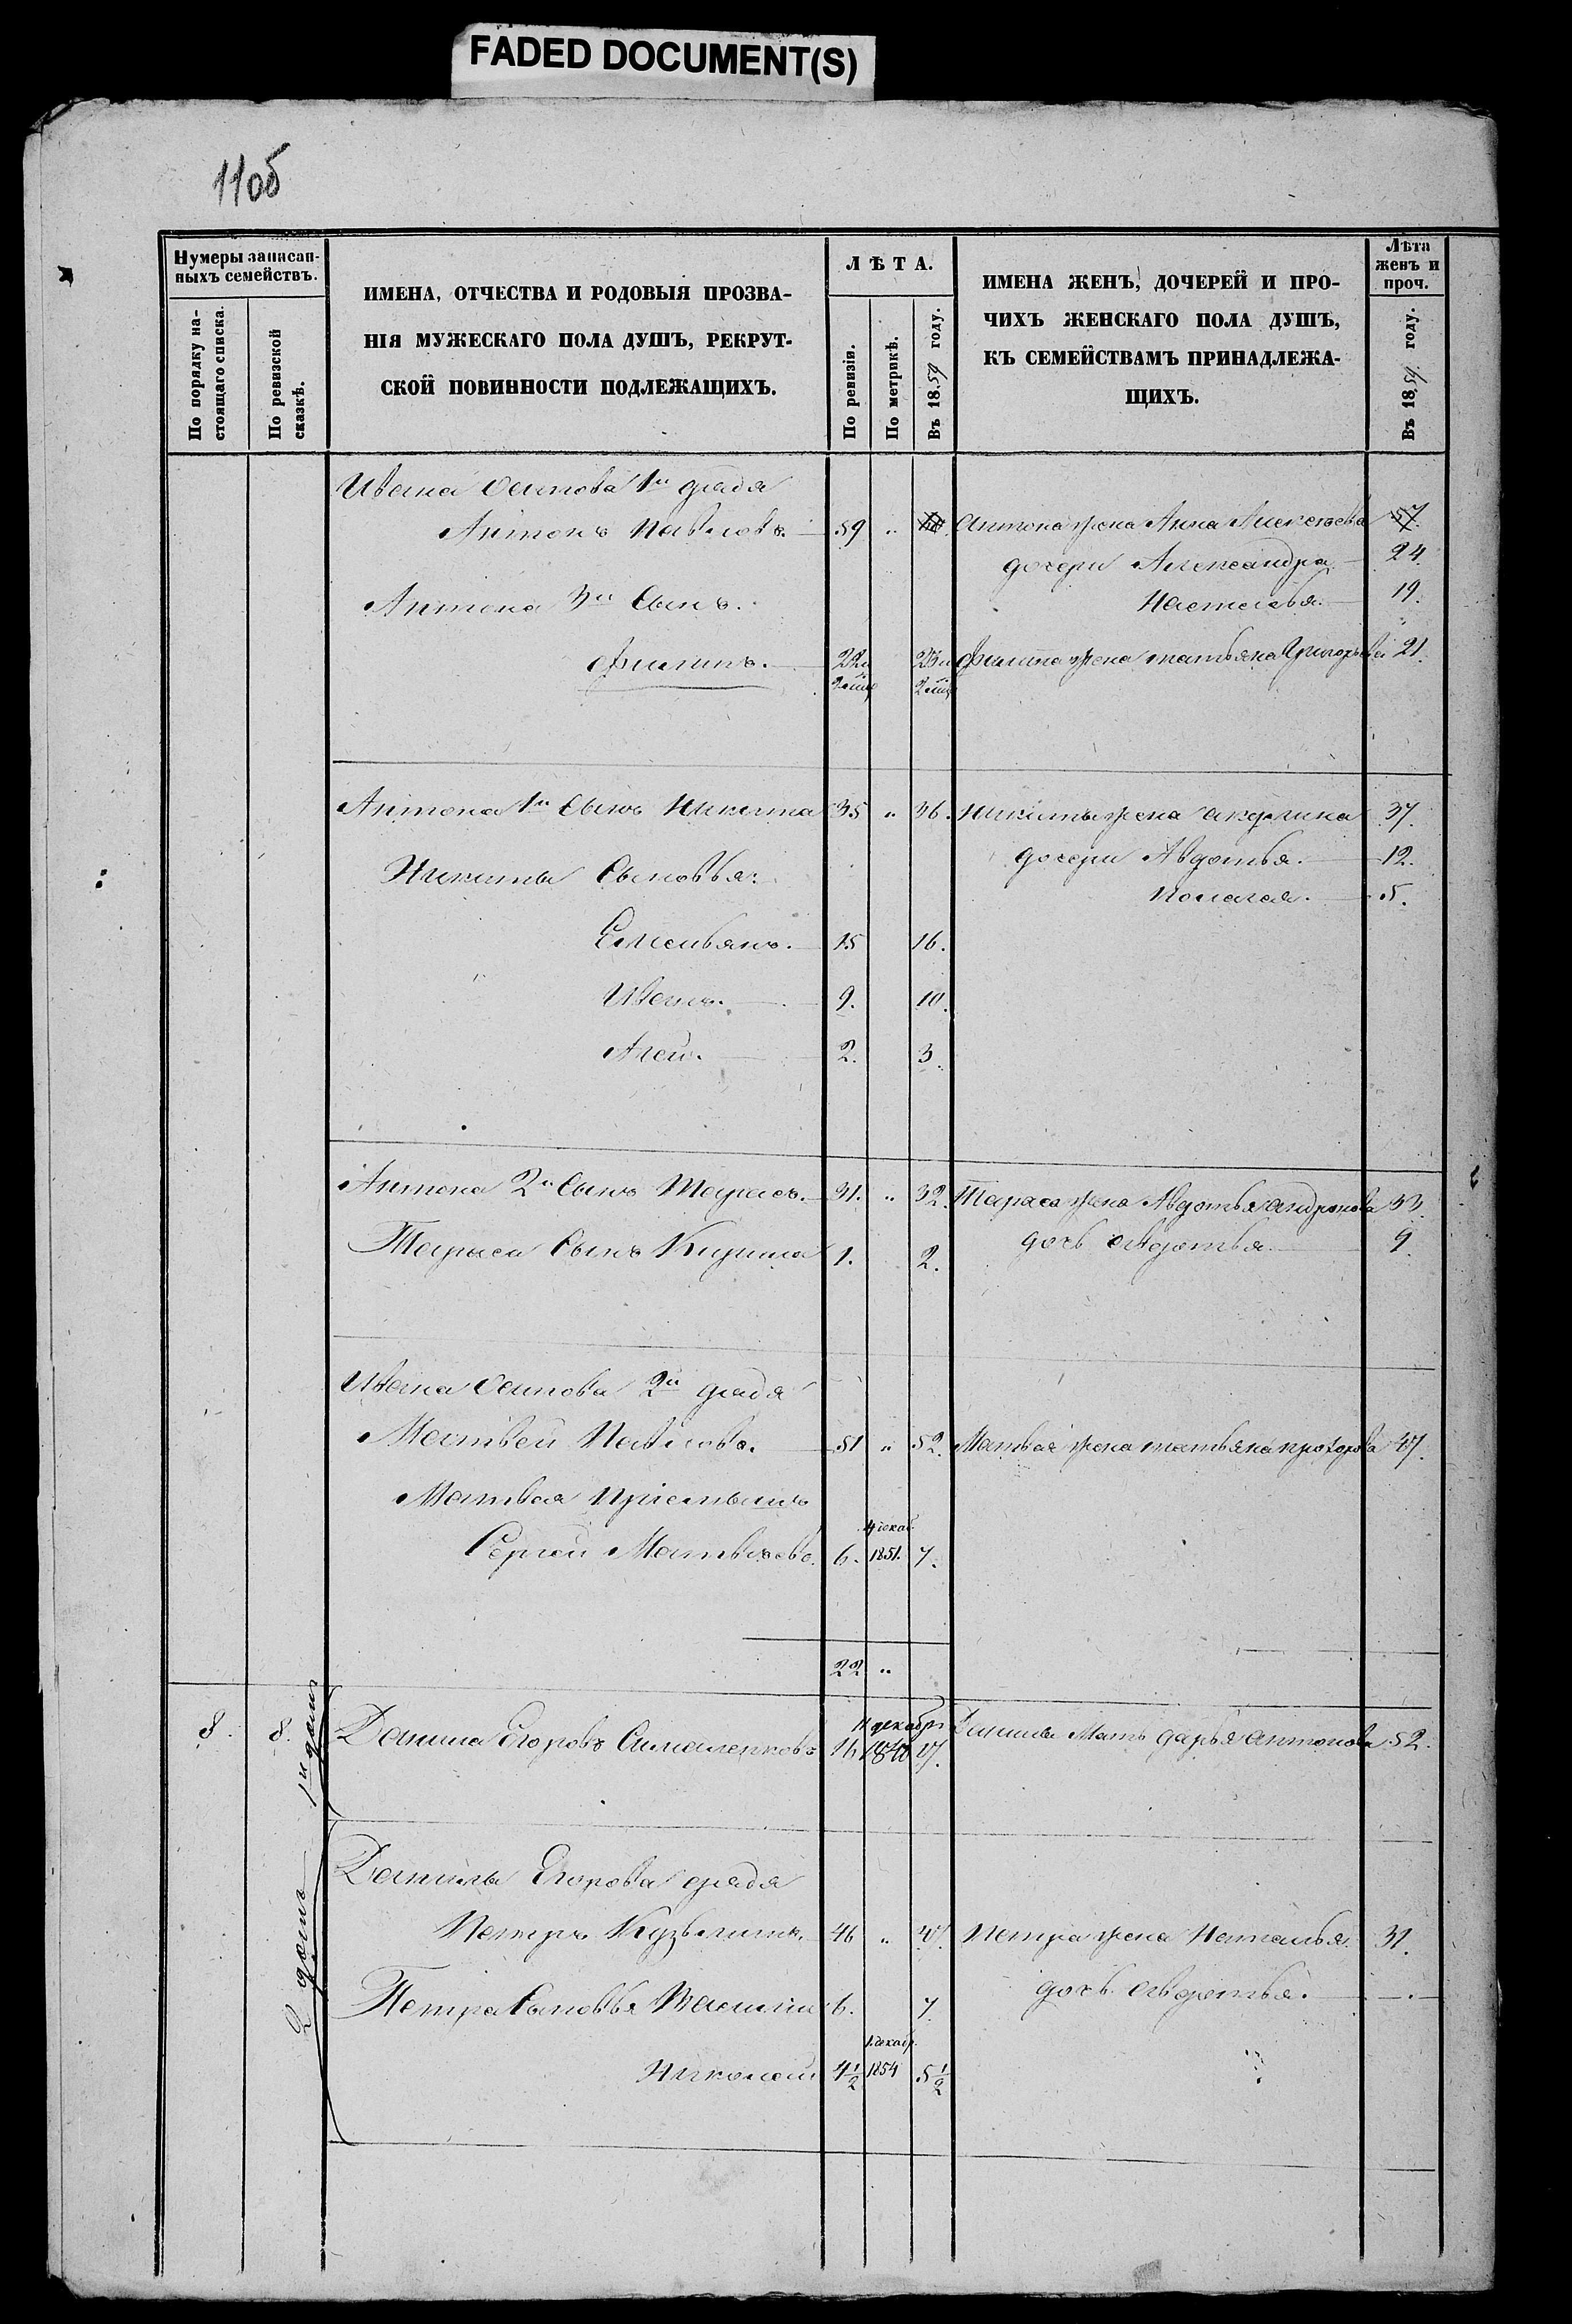 FADED DOCUMENT(S)
11об
Нумеры записан-
ныхъ семействъ.
По порядку на-
стоящаго списка.
По ревизской
сказкѣ.
ИМЕНА, ОТЧЕСТВА И РОДОВЫЯ ПРОЗВА-
НІЯ МУЖЕСКАГО ПОЛА ДУШЪ, РЕКРУТ-
СКОЙ ПОВИННОСТИ ПОДЛЕЖАЩИХЪ.
ЛѢТА.
По ревизіи.
По метрикѣ.
Въ 1859 году.
ИМЕНА ЖЕНЪ, ДОЧЕРЕЙ И ПРО-
ЧИХЪ ЖЕНСКАГО ПОЛА ДУШЪ,
КЪ СЕМЕЙСТВАМЪ ПРИНАДЛЕЖА-
ЩИХЪ.
Лѣта
женъ и
проч.
Въ 1859 году.
Ивана Осипова 1й дядя
Антонъ Павловъ. 59 " Антона жена Анна Алексѣева 57.
дочери Александра 24.
Антона 3й Сынъ. Наталья. 19.
Филипъ. 22 23 Филипа жена татьяна Григорьева 21.
Антона 1й Сынъ Никита 35 " 36. Никиты жена акулина 37.
дочери Авдотья. 12.
Никиты Сыновья:
Полагея. 5.
Емельянъ. 15 16.
Иванъ. 9. 10.
Агей. 2. 3.
Антона 2й Сынъ Тарасъ. 31. " 32. Тараса жена Авдотья андронова 33.
Тараса Сынъ Кирила 1. 2. дочь Авдотья 9.
Ивана Осипова 2й дядя
Матвей Павловъ. 51 " 52. Матвея жена татьяна прохорова 47.
Матвея пріемышъ
4 декаб.
Сергей Матвѣевъ. 6. 1851. 7.
22 "
8. 8. 1й домъ
11 декабря
Данила Егоровъ 16 1840 17. Данилы Мать дарья антонова 52.
2 домъ
Данилы Егорова дядя
Петръ Кузьминъ. 46 " 47. Петра жена Наталья. 31.
Петра Сыновья Василій 6. 7. дочь Авдотья.
1 декабр.
Николай 4 1/2 1854 5 1/2